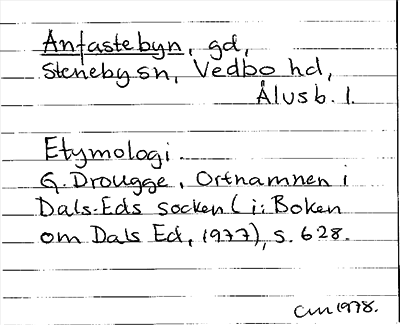 Anfastebyn, gd,
Stenebysn, Vedbo hd,
Älvsb. l.
Etymologi
G. Drougge, Ortnamnen i
Dals-Eds socken (i: Boken
om Dals Ed, 1977), s. 628.
CM 1978.